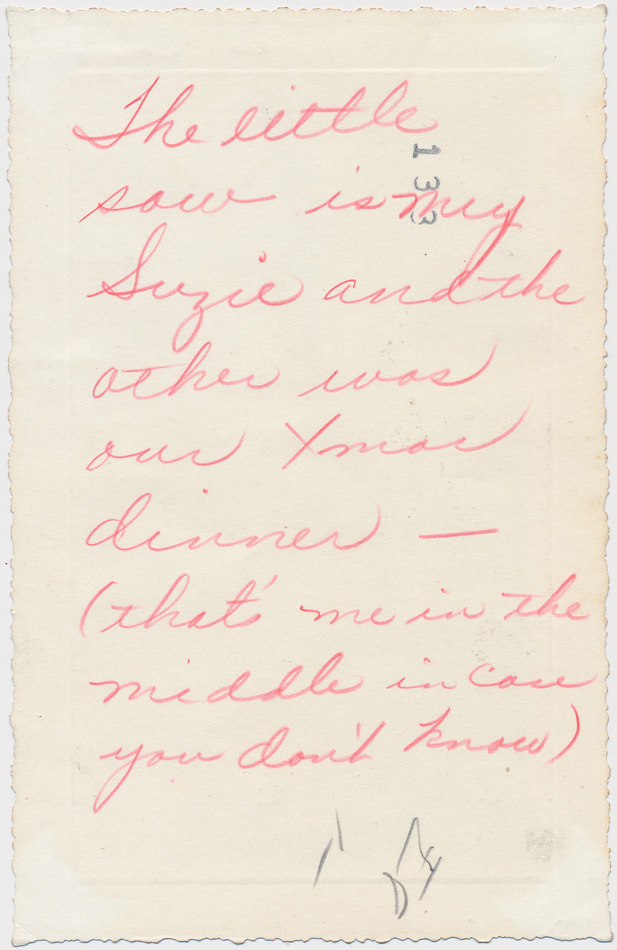 The little
133
sow is my
Suzie and the
other was
our Xmas
dinner —
(that's me in the
middle in case
you don't know)